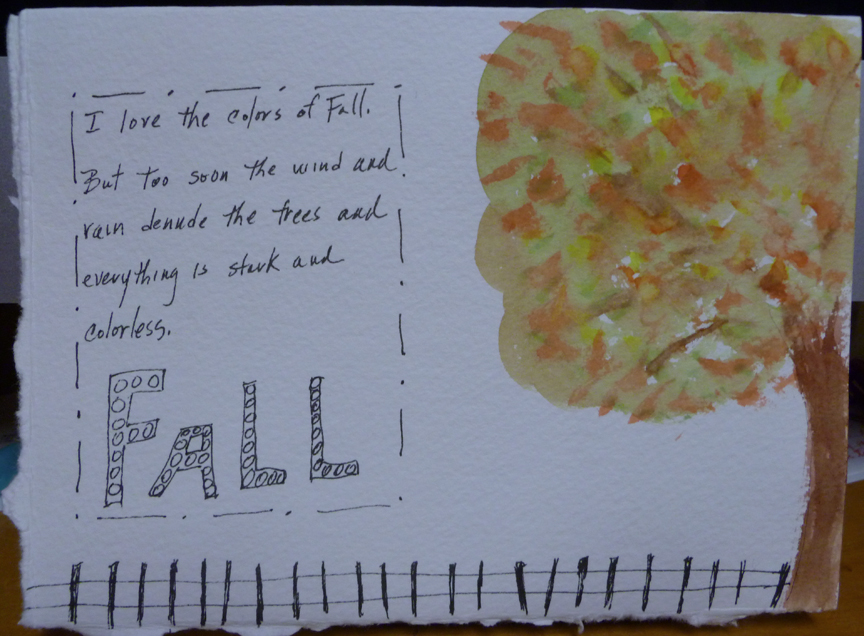 I love the colors of Fall.
But too soon the wind and
rain denude the trees and
everything is stark and
colorless.
FALL